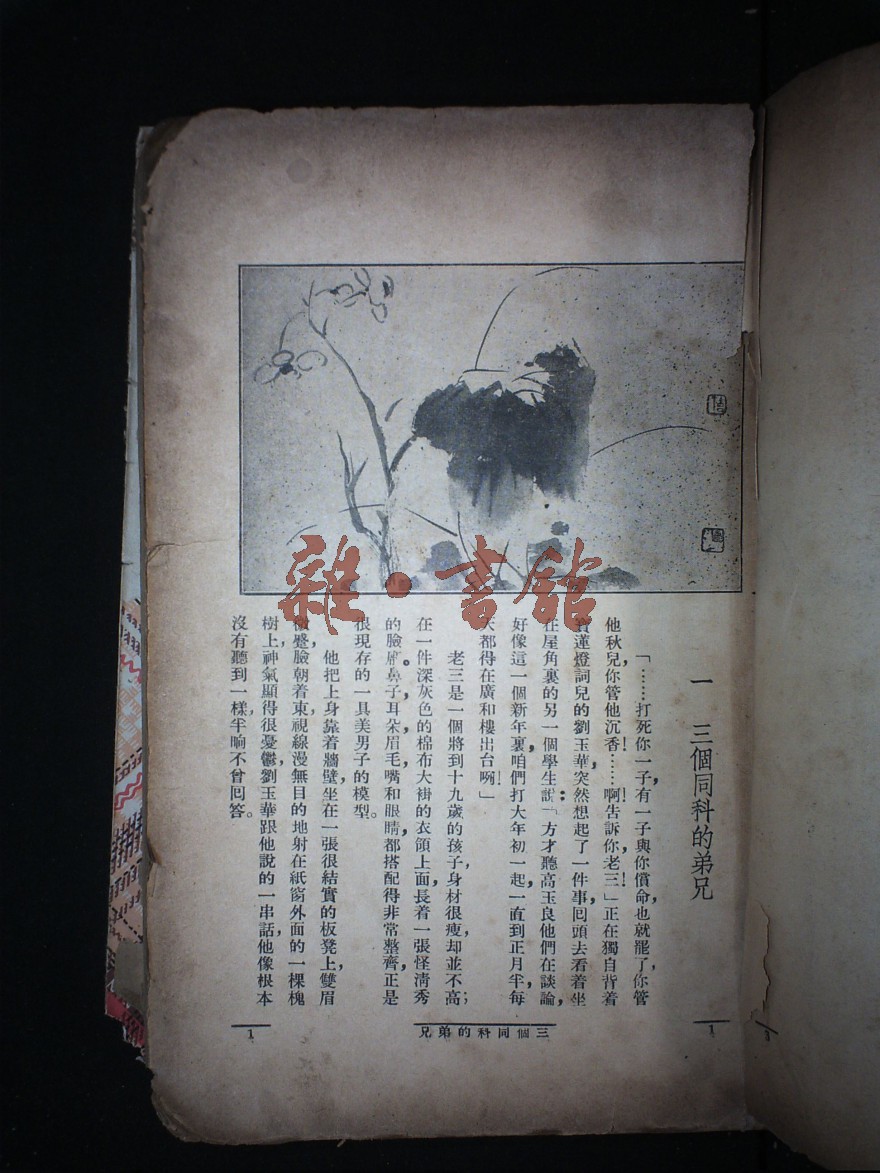 雜·書館
一 三個同科的弟兄
「……打死你一子，有一子與你償命，也就罷了，你管
他秋兒，你管他沉香！……啊！告訴你，老三！」正在獨自背着
寶蓮燈詞兒的劉玉華，突然想起了一件事，囘頭去看着坐
在屋角裏的另一個學生說：「方才聽高玉良他們在談論，
好像這一個新年裏，咱們打大年初一起，一直到正月半，每
天都得在廣和樓出台啊！」
老三是一個將到十九歲的孩子，身材很瘦，却並不高；
在一件深灰色的棉布大褂的衣領上面，長着一張怪清秀
的臉龐。鼻子，耳朵，眉毛，嘴和眼睛，都搭配得非常整齊，正是
很現存的一具美男子的模型。
他把上身靠着牆壁，坐在一張很結實的板凳上，雙眉
微蹙，臉朝着東，視線漫無目的地射在紙窗外面的一棵槐
樹上，神氣顯得很憂鬱，劉玉華跟他說的一串話，他像根本
沒有聽到一樣，半晌不曾囘答。
三個同科的弟兄
1
1